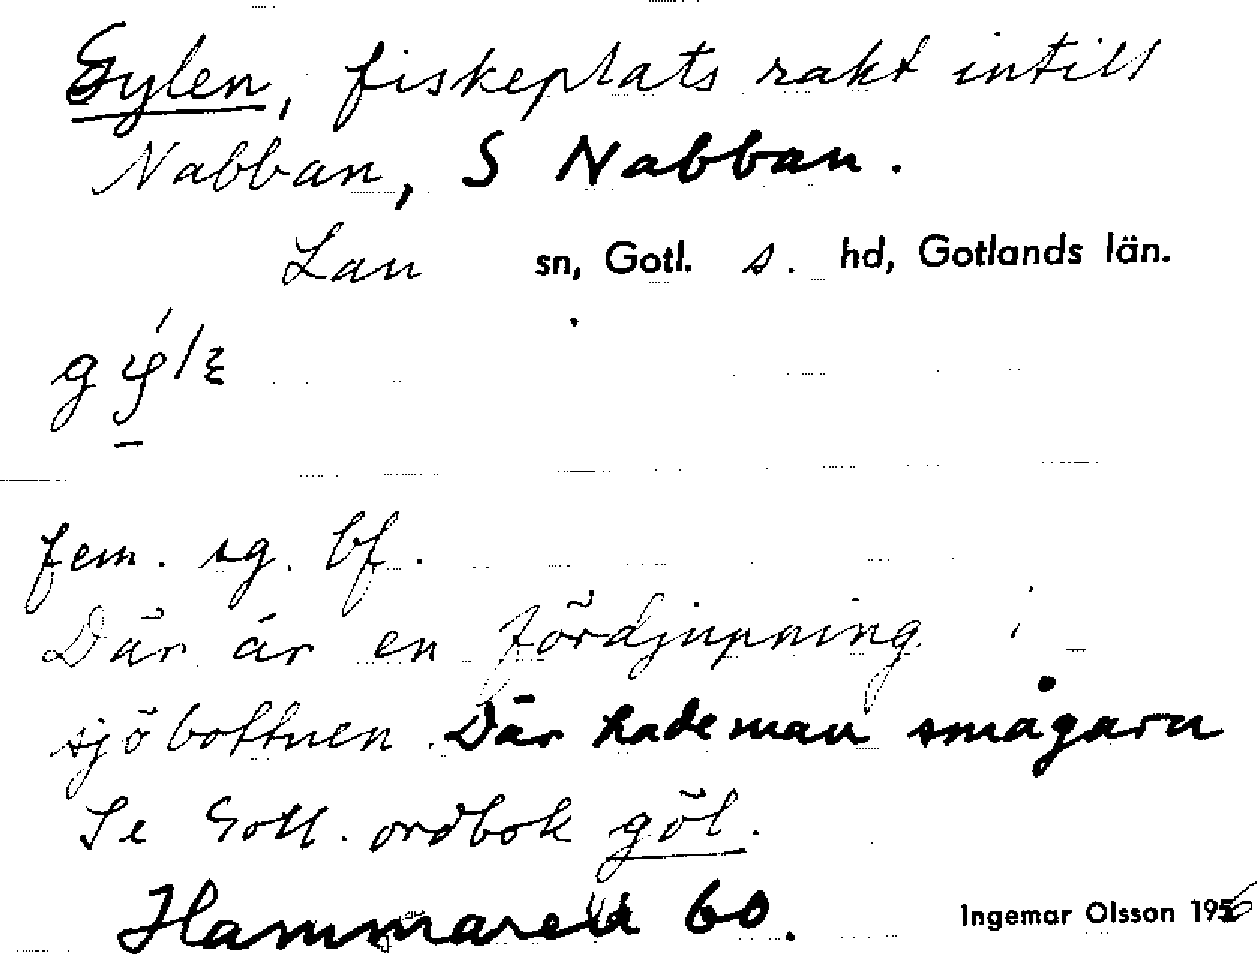 Gylen, fiskeplats rakt intill
Nabban, S Nabban.
Lau sn, Gotl. s. hd, Gotlands län.
fem. sg. bf.
Där är en fördjupning i
sjöbottnen. Där hade man smågarn
Se Gotl. ordbok göl.
Hammaren 60.
Ingemar Olsson 1956